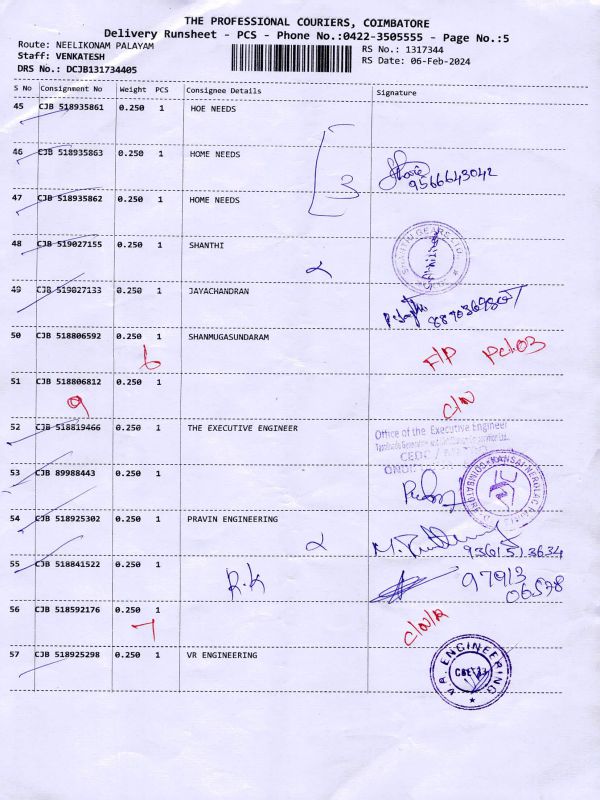 THE PROFESSIONAL COURIERS, COIMBATORE
Delivery Runsheet - PCS - Phone No.:0422-3505555 - Page No.:5
Route: NEELIKONAM PALAYAM RS No.: 1317344
Staff: VENKATESH RS Date: 06-Feb-2024
DRS No.: DCJB131734405
S No Consignment No Weight PCS Consignee Details Signature
45 CJB 518935861 0.250 1 HOE NEEDS
46 CJB 518935863 0.250 1 HOME NEEDS
3 9566643042
47 CJB 518935862 0.250 1 HOME NEEDS
48 CJB 519027155 0.250 1 SHANTHI
SHANTHI GEARS LTD.
49 CJB 519027133 0.250 1 JAYACHANDRAN
50 CJB 518806592 0.250 1 SHANMUGASUNDARAM
6 F/P
51 CJB 518806812 0.250 1
9 C/N
52 CJB 518819466 0.250 1 THE EXECUTIVE ENGINEER
Office of the Executive Engineer
53 CJB 89988443 0.250 1
KANSAI NEROLAC
54 CJB 518925302 0.250 1 PRAVIN ENGINEERING
9361513634
55 CJB 518841522 0.250 1
R.K 97913
06578
56 CJB 518592176 0.250 1
7
57 CJB 518925298 0.250 1 VR ENGINEERING
V.R. ENGINEERING